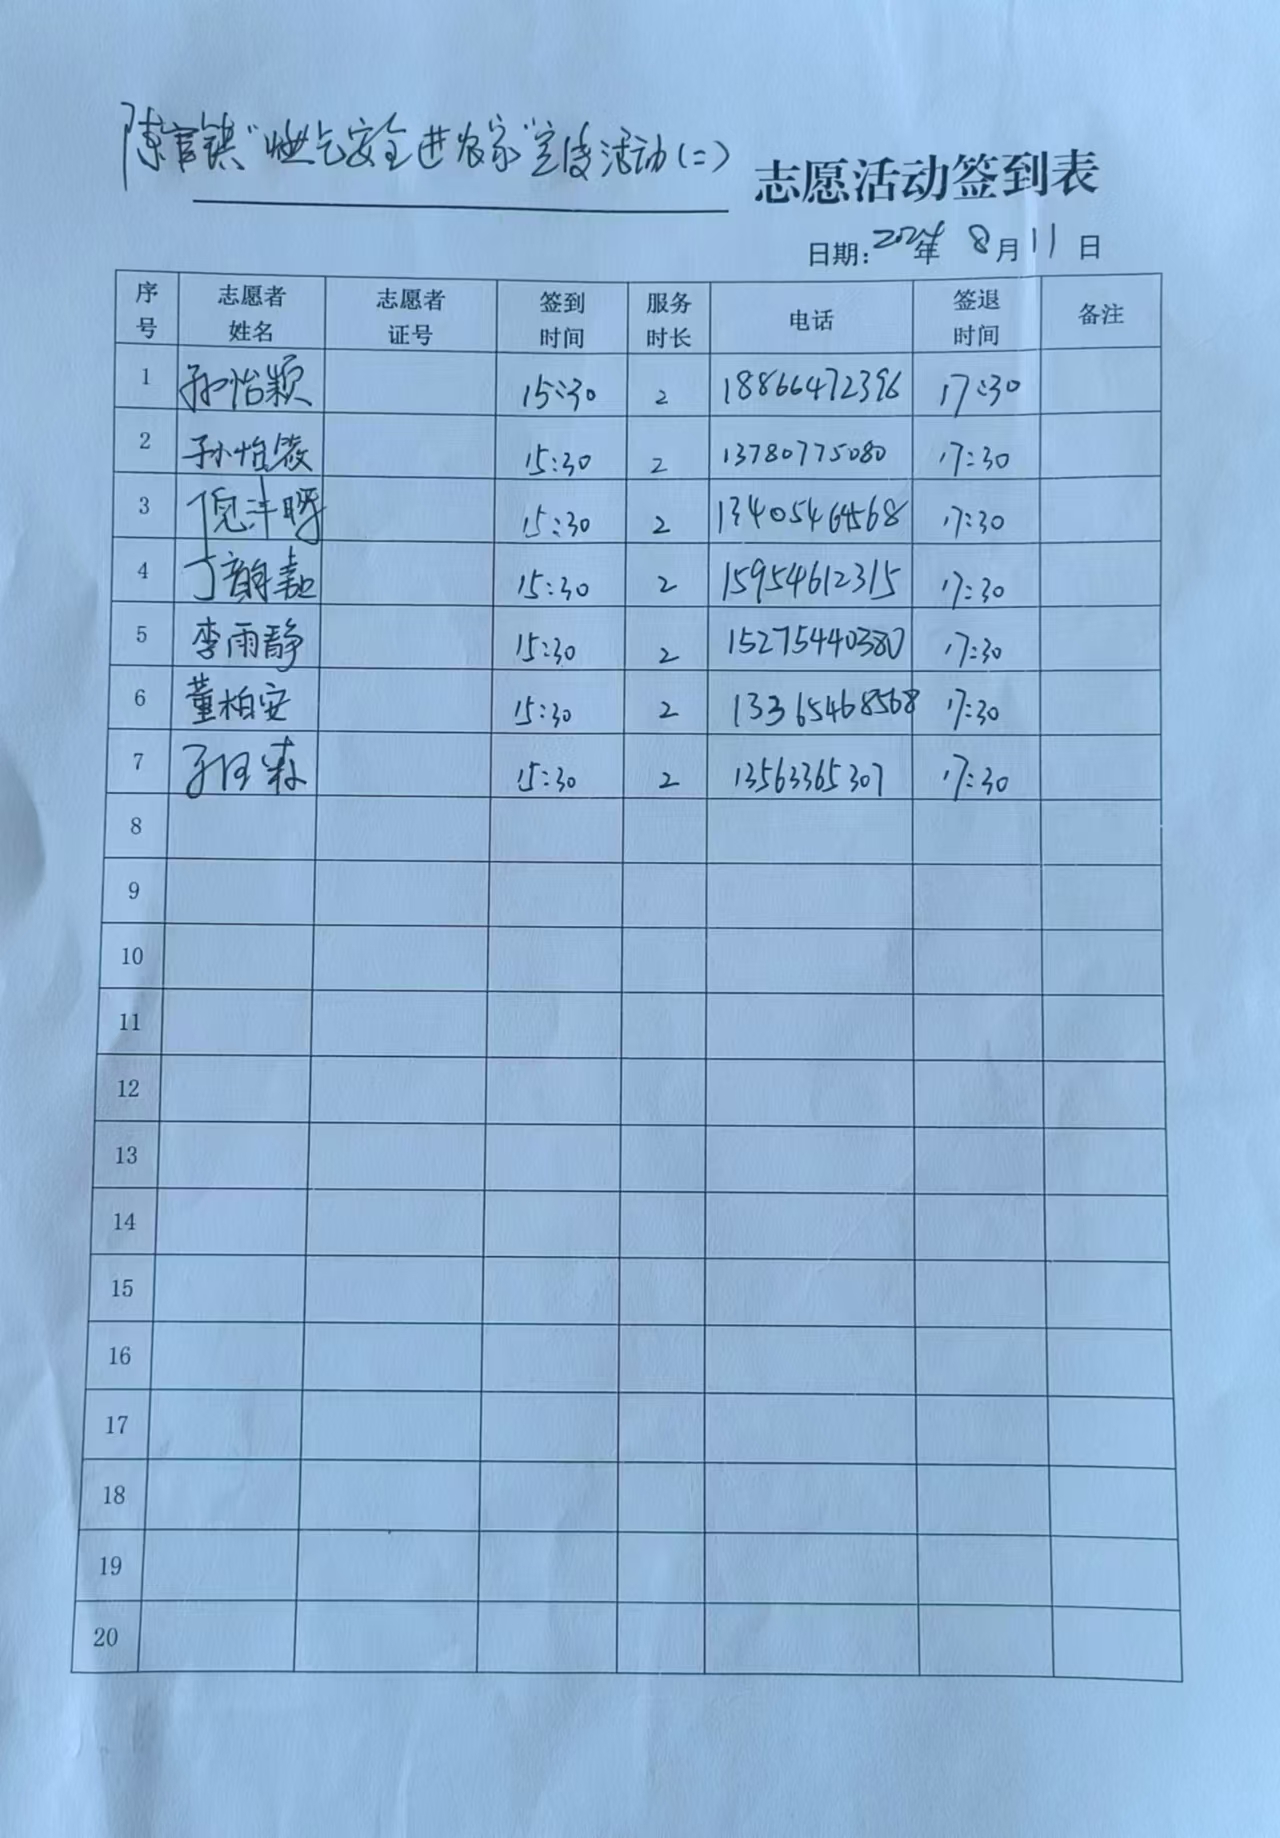 陈官镇"燃气安全进农家"宣传活动(二) 志愿活动签到表
日期:2024年 8月11日
序号 志愿者姓名 志愿者证号 签到时间 服务时长 电话 签退时间 备注
1 孙怡颖 15:30 2 18866472396 17:30
2 孙怡筱 15:30 2 13780775080 17:30
3 倪沣 15:30 2 13405464568 17:30
4 丁韵 15:30 2 15954612315 17:30
5 李雨静 15:30 2 15275440380 17:30
6 董柏安 15:30 2 13365468568 17:30
7 15:30 2 13563365307 17:30
8
9
10
11
12
13
14
15
16
17
18
19
20